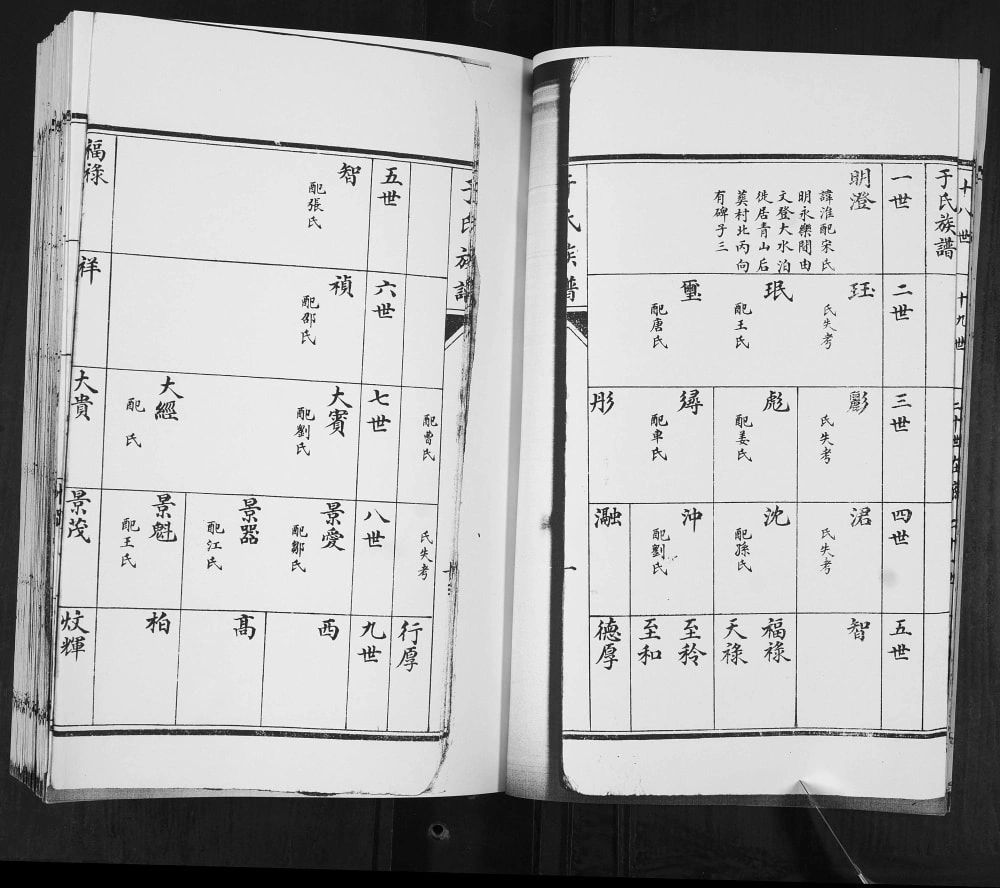 十八世
十九世
于氏族譜
一世
明澄
諱淮配宋氏
明永樂間由
文登大水泊
徙居青山后
塟村北丙向
有碑子三
二世
珏
氏失考
珉
配王氏
璽
配唐氏
三世
氏失考
彪
配姜氏
配車氏
彤
四世
涒
氏失考
沈
配孫氏
沖
配劉氏
瀜
五世
智
福祿
天祿
至矜
至和
德厚
于氏族譜
一
于氏族譜
配曹氏
氏失考
行厚
五世
智
配張氏
六世
禎
配邵氏
七世
大賓
配劉氏
大經
配 氏
八世
景愛
配鄒氏
景器
配江氏
景魁
配王氏
九世
西
高
柏
福祿
祥
大貴
景茂
炆輝